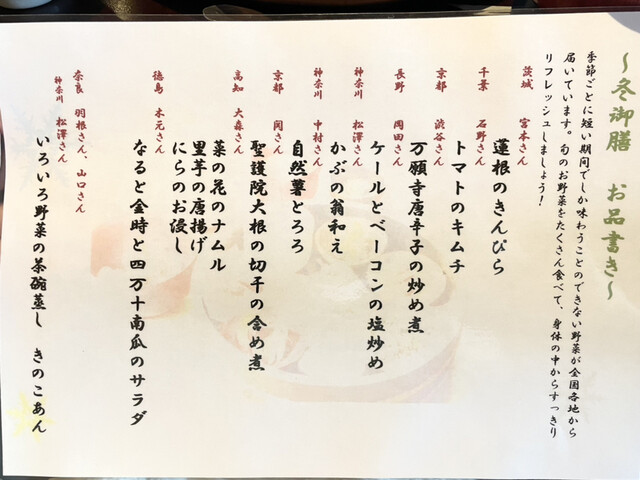 ～冬御膳　お品書き～
季節ごとに短い期間でしか味わうことのできない野菜が全国各地から
届いています。旬のお野菜をたくさん食べて、身体の中からすっきり
リフレッシュしましょう！
茨城　宮本さん
蓮根のきんぴら
千葉　石野さん
トマトのキムチ
京都　渋谷さん
万願寺唐辛子の炒め煮
長野　岡田さん
ケールとベーコンの塩炒め
神奈川　松澤さん
かぶの翁和え
神奈川　中村さん
自然薯とろろ
京都　関さん
聖護院大根の切干の含め煮
高知　大森さん
菜の花のナムル
里芋の唐揚げ
にらのお浸し
徳島　木元さん
なると金時と四万十南瓜のサラダ
奈良　羽根さん、山口さん
神奈川　松澤さん
いろいろ野菜の茶碗蒸し　きのこあん